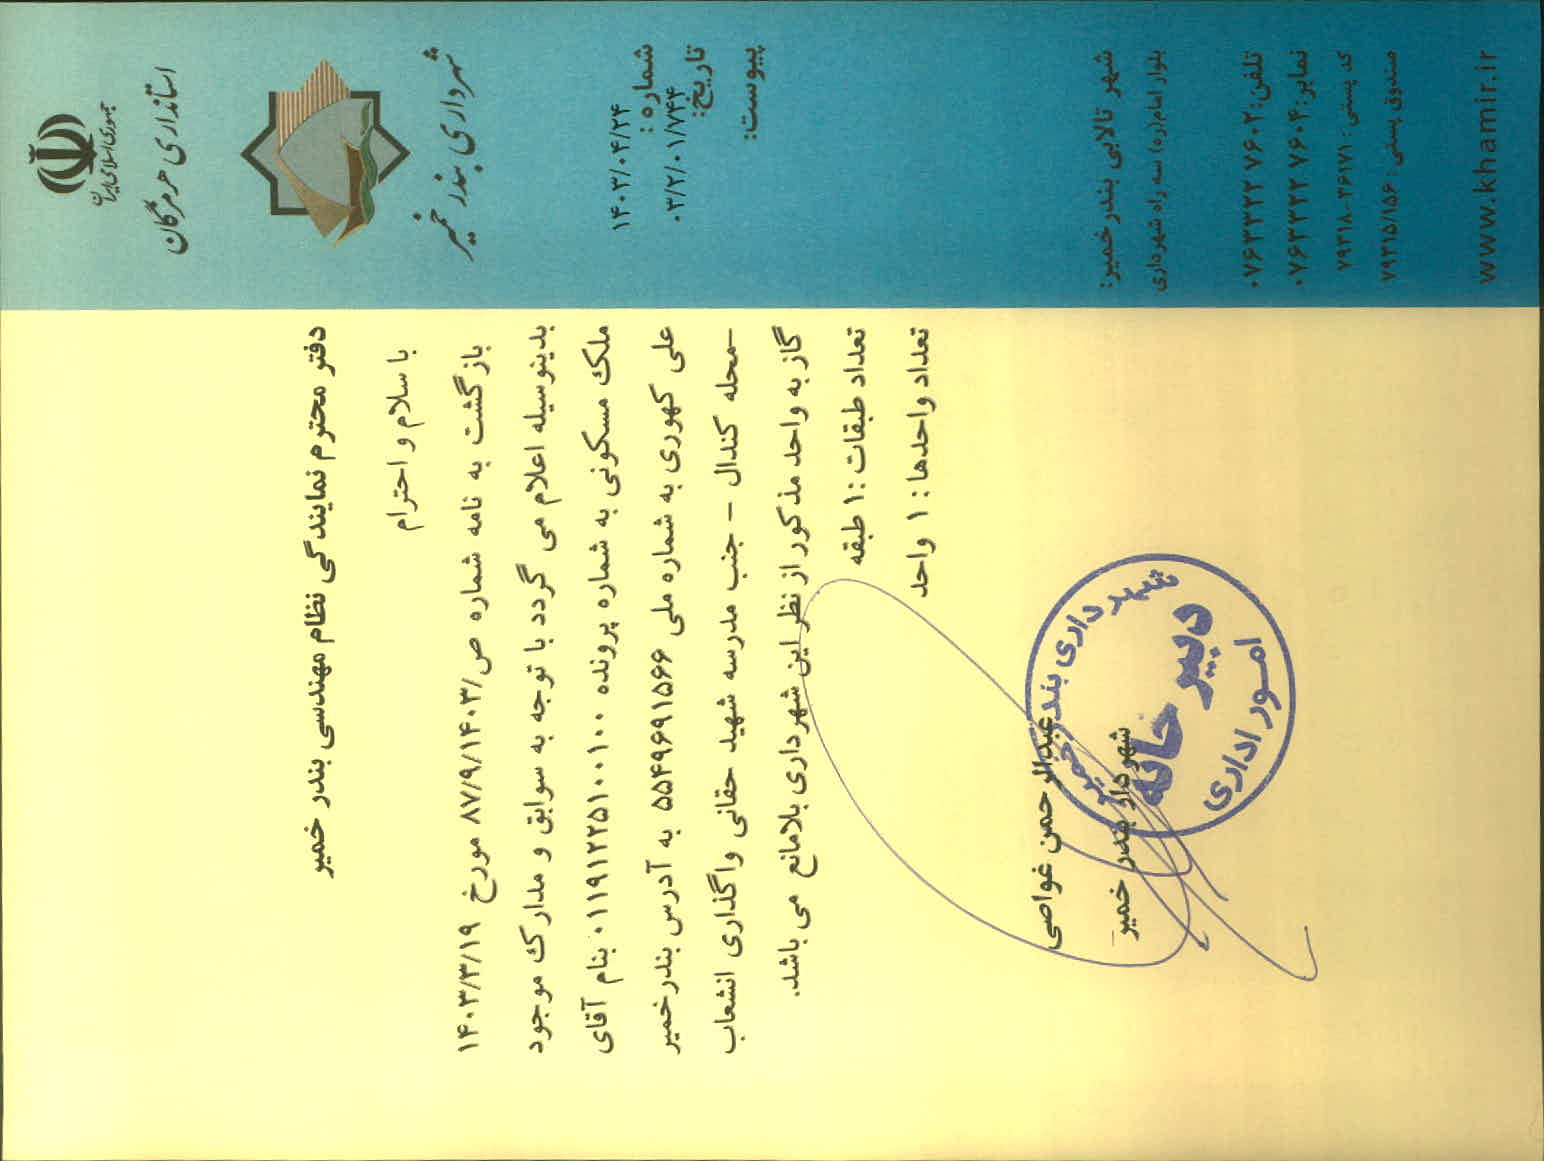 جمهوری اسلامی ایران
استانداری هرمزگان
شهرداری بندر خمیر
شماره :
۱۴۰۳/۰۴/۲۴
تاریخ:
۰۳/۲/۰۱/۷۴۴
پیوست:
شهر تالابی بندر خمیر:
بلوار امام(ره) سه راه شهرداری
تلفن: ۰۷۶۳۳۲۲ ۷۶۰۲
نمابر: ۰۷۶۳۳۲۲ ۷۶۰۴
کد پستی : ۷۹۳۱۸-۳۶۱۷۱
صندوق پستی : ۷۹۳۱۵/۱۵۶
www.khamir.ir
دفتر محترم نمایندگی نظام مهندسی بندر خمیر
با سلام و احترام
بازگشت به نامه شماره ص/۸۷/۹/۱۴۰۳ مورخ ۱۴۰۳/۳/۱۹
بدینوسیله اعلام می گردد با توجه به سوابق و مدارک موجود
ملک مسکونی به شماره پرونده ۰۱۱۹۱۲۲۵۱۰۰۱۰۰ بنام آقای
علی کهوری به شماره ملی ۵۵۴۹۶۹۱۵۶۶ به آدرس بندرخمیر
–محله کندال – جنب مدرسه شهید حقانی واگذاری انشعاب
گاز به واحد مذکور از نظر این شهرداری بلامانع می باشد.
تعداد طبقات :۱ طبقه
تعداد واحدها : ۱ واحد
عبدالرحمن غواصی
شهردار بندر خمیر
شهرداری بندر خمیر
دبیر خانه
امور اداری